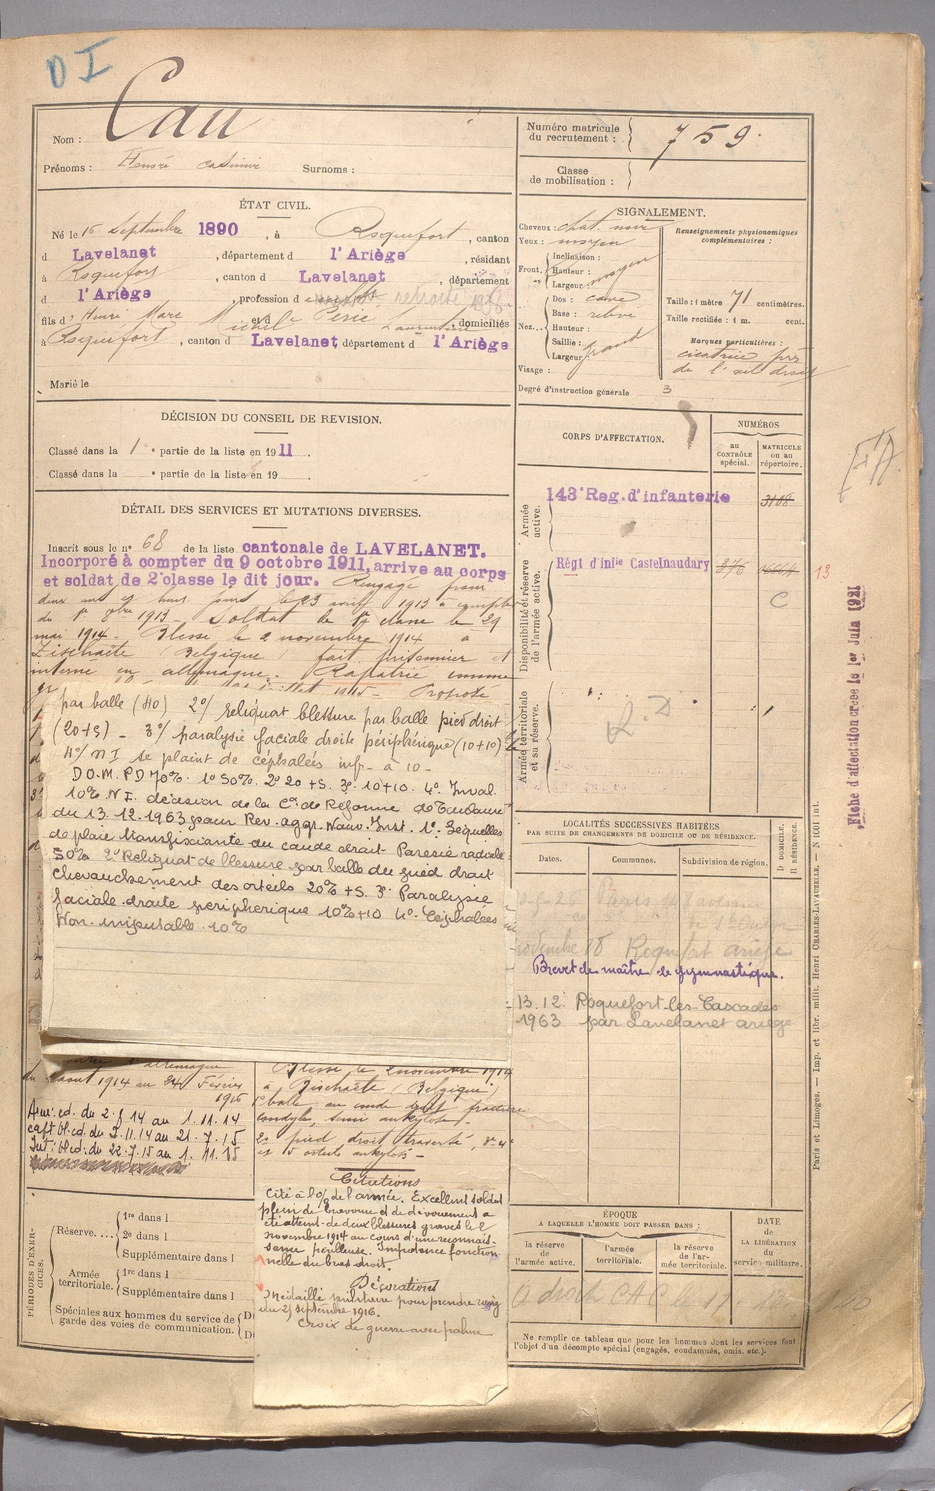 D I
Nom : Cau
Prénoms : Henri Casimir Surnoms :
Numéro matricule du recrutement : 759
Classe de mobilisation :
ÉTAT CIVIL.
Né le 16 Septembre 1890, à Roquefort, canton
d Lavelanet, département d l'Ariège, résidant
à Roquefort, canton d Lavelanet, département
d l'Ariège, profession d retraité
fils d Henri Marc et d Peric Laurentine, domiciliés
à Roquefort, canton d Lavelanet, département d l'Ariège
Marié le
SIGNALEMENT.
Cheveux : chat. noir
Yeux : moyen
Front. Inclinaison :
Hauteur : moyen
Largeur :
Nez. Dos : cave
Base : relevé
Hauteur :
Saillie :
Largeur : grand
Visage :
Renseignements physionomiques complémentaires :
Taille : 1 mètre 71 centimètres.
Taille rectifiée : 1 m. cent.
Marques particulières :
cicatrice près
de l'œil droit
Degré d'instruction générale 3
DÉCISION DU CONSEIL DE REVISION.
Classé dans la 1 e partie de la liste en 1911
Classé dans la e partie de la liste en 19
DÉTAIL DES SERVICES ET MUTATIONS DIVERSES.
Inscrit sous le n° 68 de la liste cantonale de LAVELANET.
Incorporé à compter du 9 octobre 1911, arrive au corps
et soldat de 2e classe le dit jour. Rengagé pour
deux ans et huit jours le 23 avril 1913 à compter
du 1er 8bre 1913. Soldat de 1e classe le 29
mai 1914. Blessé le 2 novembre 1914 à
Zischaëte (Belgique) fait prisonnier et
interné en allemagne. Rapatrié comme
1915. Proposé
par balle (40) 2°/ reliquat blessure par balle pied droit
(20+5) - 3°/ paralysie faciale droite périphérique (10+10)
4°/ N I se plaint de céphalées inf. à 10 -
D.O.M. P.D 70%. 1° 50%. 2° 20 + 5. 3° 10+10. 4° Inval.
10% N I. décision de la Con de Réforme de Toulouse
du 13.12.1963 pour Rev. aggr. Nouv. Inst. 1° Sequelles
de plaie transfixiante du coude droit Paresie radiale
50% 2° Reliquat de blessure par balle du pied droit
chevauchement des orteils 20% + 5. 3° Paralysie
faciale droite peripherique 10% + 10 4° Céphalées
Non imputable. 10%
CORPS D'AFFECTATION.
NUMÉROS
au CONTRÔLE spécial.
MATRICULE ou au répertoire.
Armée active.
143e Reg. d'infanterie
Disponibilité et réserve de l'armée active.
Régt d'infie Castelnaudary 876
13
C
Armée territoriale et sa réserve.
L. D
Fiche d'affectation créée le 1er Juin 1921
LOCALITÉS SUCCESSIVES HABITÉES
PAR SUITE DE CHANGEMENTS DE DOMICILE OU DE RÉSIDENCE.
Dates. Communes. Subdivision de région. D DOMICILE, R RÉSIDENCE.
Paris avenue
de St Ouen
novembre Roquefort ariège
Brevet de maître de gymnastique.
13.12 Roquefort-les-Cascades
1963 par Lavelanet ariège
ÉPOQUE
A LAQUELLE L'HOMME DOIT PASSER DANS :
la réserve de l'armée active.
l'armée territoriale.
la réserve de l'armée territoriale.
DATE DE LA LIBÉRATION du service militaire.
A droit C A C
Ne remplir ce tableau que pour les hommes dont les services font
l'objet d'un décompte spécial (engagés, condamnés, omis, etc.).
Paris et Limoges. — Imp. et libr. milit. Henri CHARLES-LAVAUZELLE. — N 1001 int.
allemagne
août 1914 au 24 Février
1916
Arm: cd. du 2.8.14 au 1.11.14
capt bl.cd. du 2.11.14 au 21.7.15
Int: bl.cd. du 22.7.15 au 1.11.15
Blessé le 2 novembre 1914
à Zischaëte (Belgique)
1° balle au coude droit fracture
condyle, semi ankylose.
2° pied droit traversé, 3e 4e
et 5 orteils ankylosés -
Citations
Cité à l'O/ de l'armée. Excellent soldat
plein de bravoure et de dévouement a
été atteint de deux blessures graves le 2
novembre 1914 au cours d'une reconnais-
sance périlleuse. Impotence fonction-
nelle du bras droit.
Décorations
Médaille militaire pour prendre rang
du 25 septembre 1916.
Croix de guerre avec palme
PÉRIODES D'EXERCICES.
Réserve. 1re dans l
2e dans l
Supplémentaire dans l
Armée territoriale. 1re dans l
Supplémentaire dans l
Spéciales aux hommes du service de
garde des voies de communication.